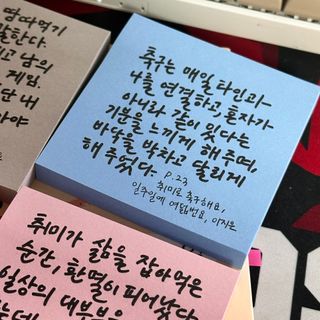 땀따먹기
고 남의
게임.
단 내
아야
축구는 매일 타인과
나를 연결하고, 혼자가
아니라 같이 있다는
기분을 느끼게 해주며,
바닥을 박차고 달리게
해 주었다. p.23
취미로 축구해요,
일주일에 여덟번요, 이지은
취미가 삶을 잡아먹은
순간, 환멸이 피어났다.
일상의 대부분을